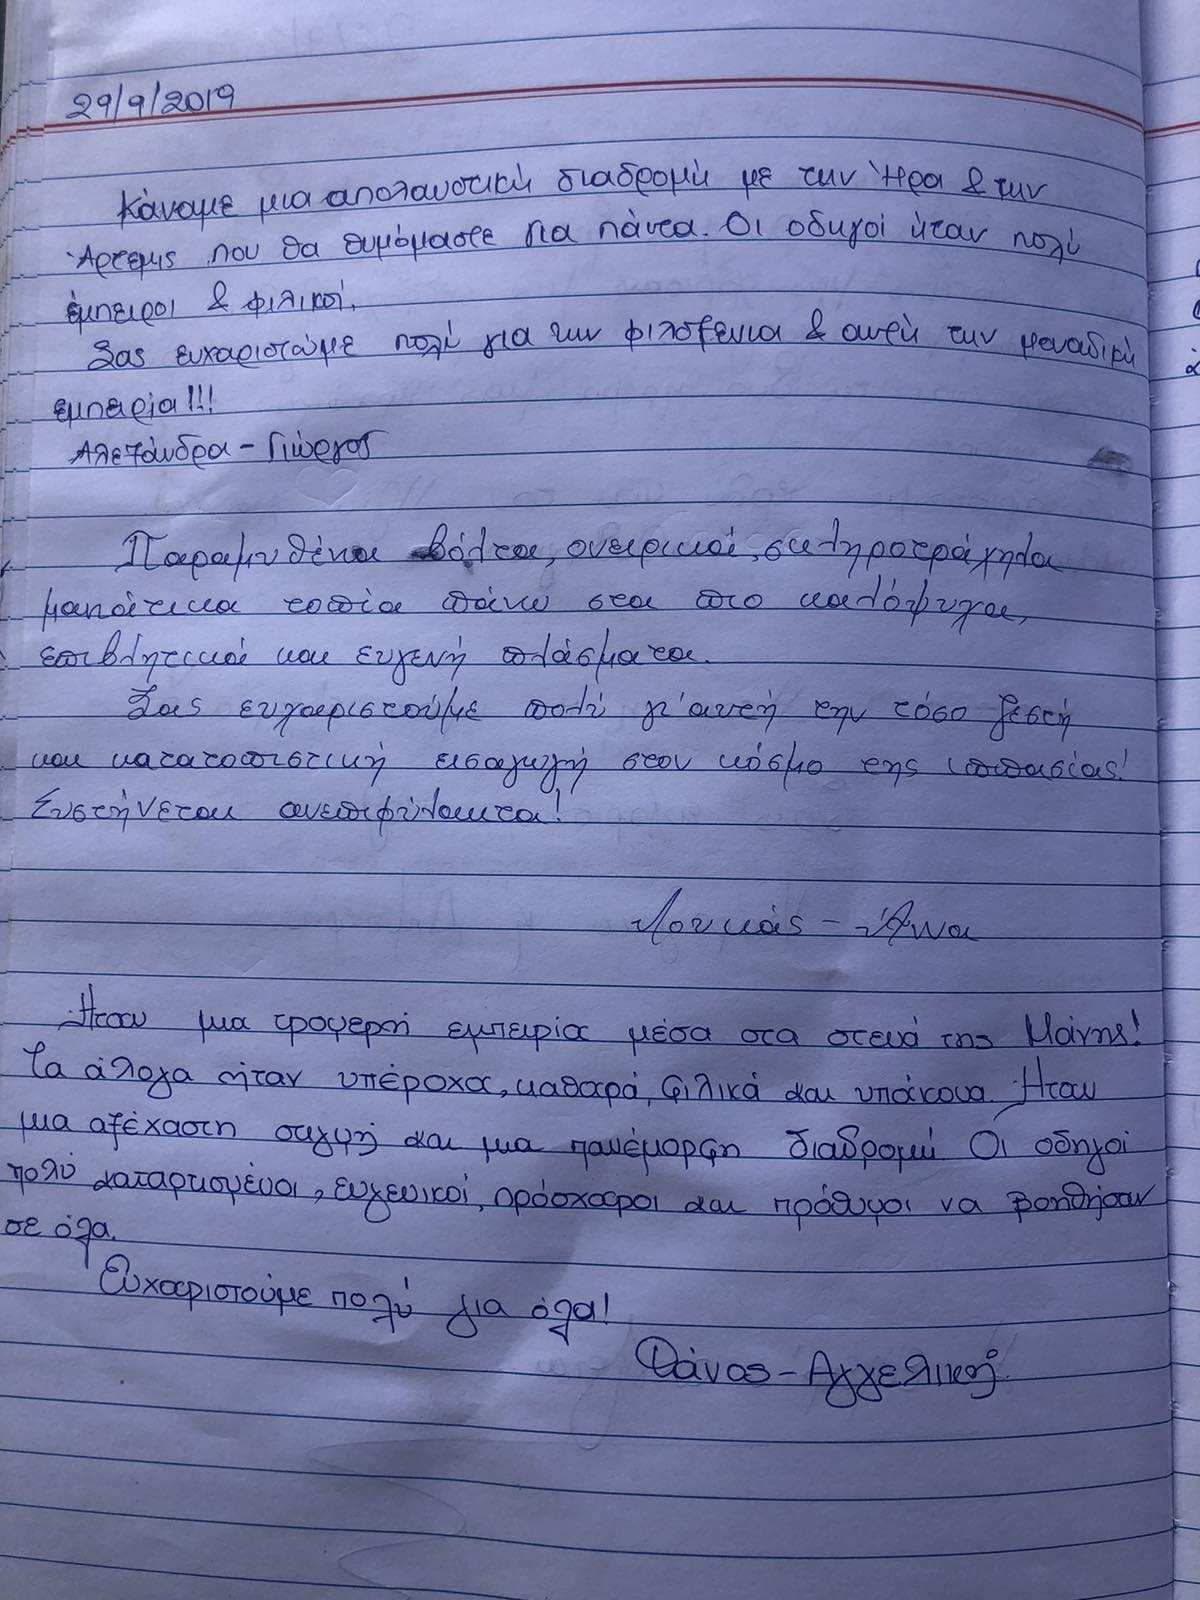 29/9/2019
Κάναμε μια απολαυστική διαδρομή με την Ήρα & την
Άρτεμις που θα θυμόμαστε για πάντα. Οι οδηγοί ήταν πολύ
έμπειροι & φιλικοί.
Σας ευχαριστούμε πολύ για την φιλοξενία & αυτή την μοναδική
εμπειρία!!!
Αλεξάνδρα - Γιώργος
Παραμυθένια βόλτα, ονειρικοί, σκληροτράχηλα
μανιάτικα τοπία πάνω στα πιο καλόψυχα,
επιβλητικά και ευγενή πλάσματα.
Σας ευχαριστούμε πολύ γι'αυτή την τόσο ζεστή
και κατατοπιστική εισαγωγή στον κόσμο της ιππασίας!
Συστήνεται ανεπιφύλακτα!
Λουκάς - Άννα
Ήταν μια τρομερή εμπειρία μέσα στα στενά της Μάνης!
Τα άλογα ήταν υπέροχα, καθαρά, φιλικά και υπάκουα. Ήταν
μια αξέχαστη στιγμή και μια πανέμορφη διαδρομή. Οι οδηγοί
πολύ καταρτισμένοι, ευγενικοί, πρόσχαροι και πρόθυμοι να βοηθήσουν
σε όλα.
Ευχαριστούμε πολύ για όλα!
Φάνος - Αγγελική